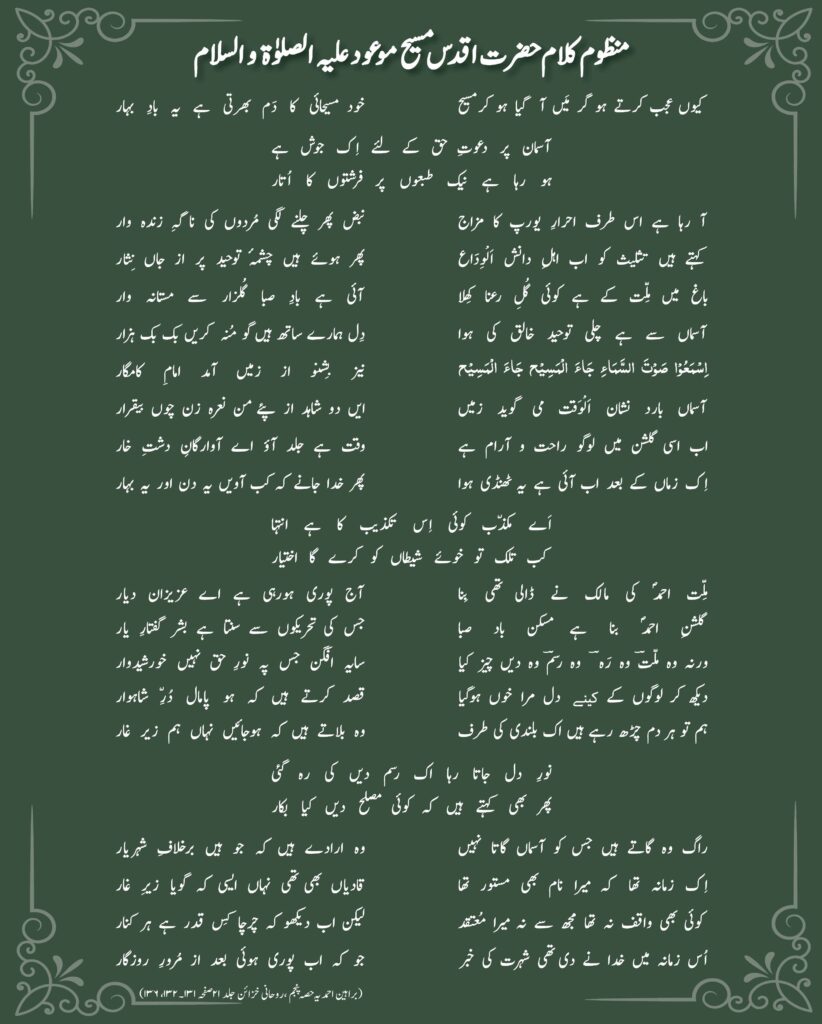 منظوم کلام حضرت اقدس مسیح موعود علیہ الصلوٰۃ و السلام
کیوں عجب کرتے ہو گر مَیں آ گیا ہو کر مسیح خود مسیحائی کا دَم بھرتی ہے یہ بادِ بہار
آسمان پر دعوتِ حق کے لئے اِک جوش ہے
ہو رہا ہے نیک طبعوں پر فرشتوں کا اُتار
آ رہا ہے اس طرف احرارِ یورپ کا مزاج نبض پھر چلنے لگی مُردوں کی ناگہِ زندہ وار
کہتے ہیں تثلیث کو اب اہلِ دانش اَلْوِدَاع پھر ہوئے ہیں چشمۂ توحید پر از جاں نِثار
باغ میں مِلّت کے ہے کوئی گُلِ رعنا کِھلا آئی ہے بادِ صبا گُلزار سے مستانہ وار
آسماں سے ہے چلی توحید خالق کی ہوا دِل ہمارے ساتھ ہیں گو مُنہ کریں بک بک ہزار
اِسْمَعُوْا صَوْتَ السَّمَاءِ جَاءَ الْمَسِیْح جَاءَ الْمَسِیْح نیز بِشنو از زمیں آمد امامِ کامگار
آسماں بارد نشان اَلْوَقت می گوید زمیں ایں دو شاہد از پئے من نعرہ زن چوں بیقرار
اب اسی گلشن میں لوگو راحت و آرام ہے وقت ہے جلد آؤ اے آوارگانِ دشتِ خار
اِک زماں کے بعد اب آئی ہے یہ ٹھنڈی ہوا پھر خدا جانے کہ کب آویں یہ دن اور یہ بہار
اَے مکذّب کوئی اِس تکذیب کا ہے انتہا
کب تلک تو خوئے شیطاں کو کرے گا اختیار
مِلّت احمدؐ کی مالک نے ڈالی تھی بِنا آج پوری ہورہی ہے اے عزیزان دیار
گلشنِ احمدؐ بنا ہے مسکن باد صبا جس کی تحریکوں سے سنتا ہے بشر گفتارِ یار
ورنہ وہ ملّت وہ رَہ وہ رسم وہ دیں چیز کیا سایہ افگن جس پہ نورِ حق نہیں خورشیدوار
دیکھ کر لوگوں کے کینے دل مرا خوں ہوگیا قصد کرتے ہیں کہ ہو پامال دُرِّ شاہوار
ہم تو ہر دم چڑھ رہے ہیں اک بلندی کی طرف وہ بلاتے ہیں کہ ہوجائیں نہاں ہم زیر غار
نورِ دل جاتا رہا اک رسم دیں کی رہ گئی
پھر بھی کہتے ہیں کہ کوئی مصلح دیں کیا بکار
راگ وہ گاتے ہیں جس کو آسماں گاتا نہیں وہ ارادے ہیں کہ جو ہیں برخلافِ شہریار
اِک زمانہ تھا کہ میرا نام بھی مستور تھا قادیاں بھی تھی نہاں ایسی کہ گویا زیرِ غار
کوئی بھی واقف نہ تھا مجھ سے نہ میرا مُعتقد لیکن اب دیکھو کہ چرچا کِس قدر ہے ہر کنار
اُس زمانہ میں خدا نے دی تھی شہرت کی خبر جو کہ اب پوری ہوئی بعد از مُرورِ روزگار
(براہین احمدیہ حصہ پنجم، روحانی خزائن جلد ۲۱ صفحہ ۱۳۱۔۱۳۲، ۱۳۶)